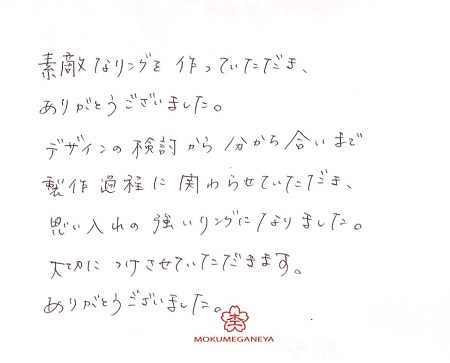 素敵なリングを作っていただき、
ありがとうございました。
デザインの検討から分かち合いまで
製作過程に関わらせていただき、
思い入れの強いリングになりました。
大切につけさせていただきます。
ありがとうございました。
MOKUMEGANEYA